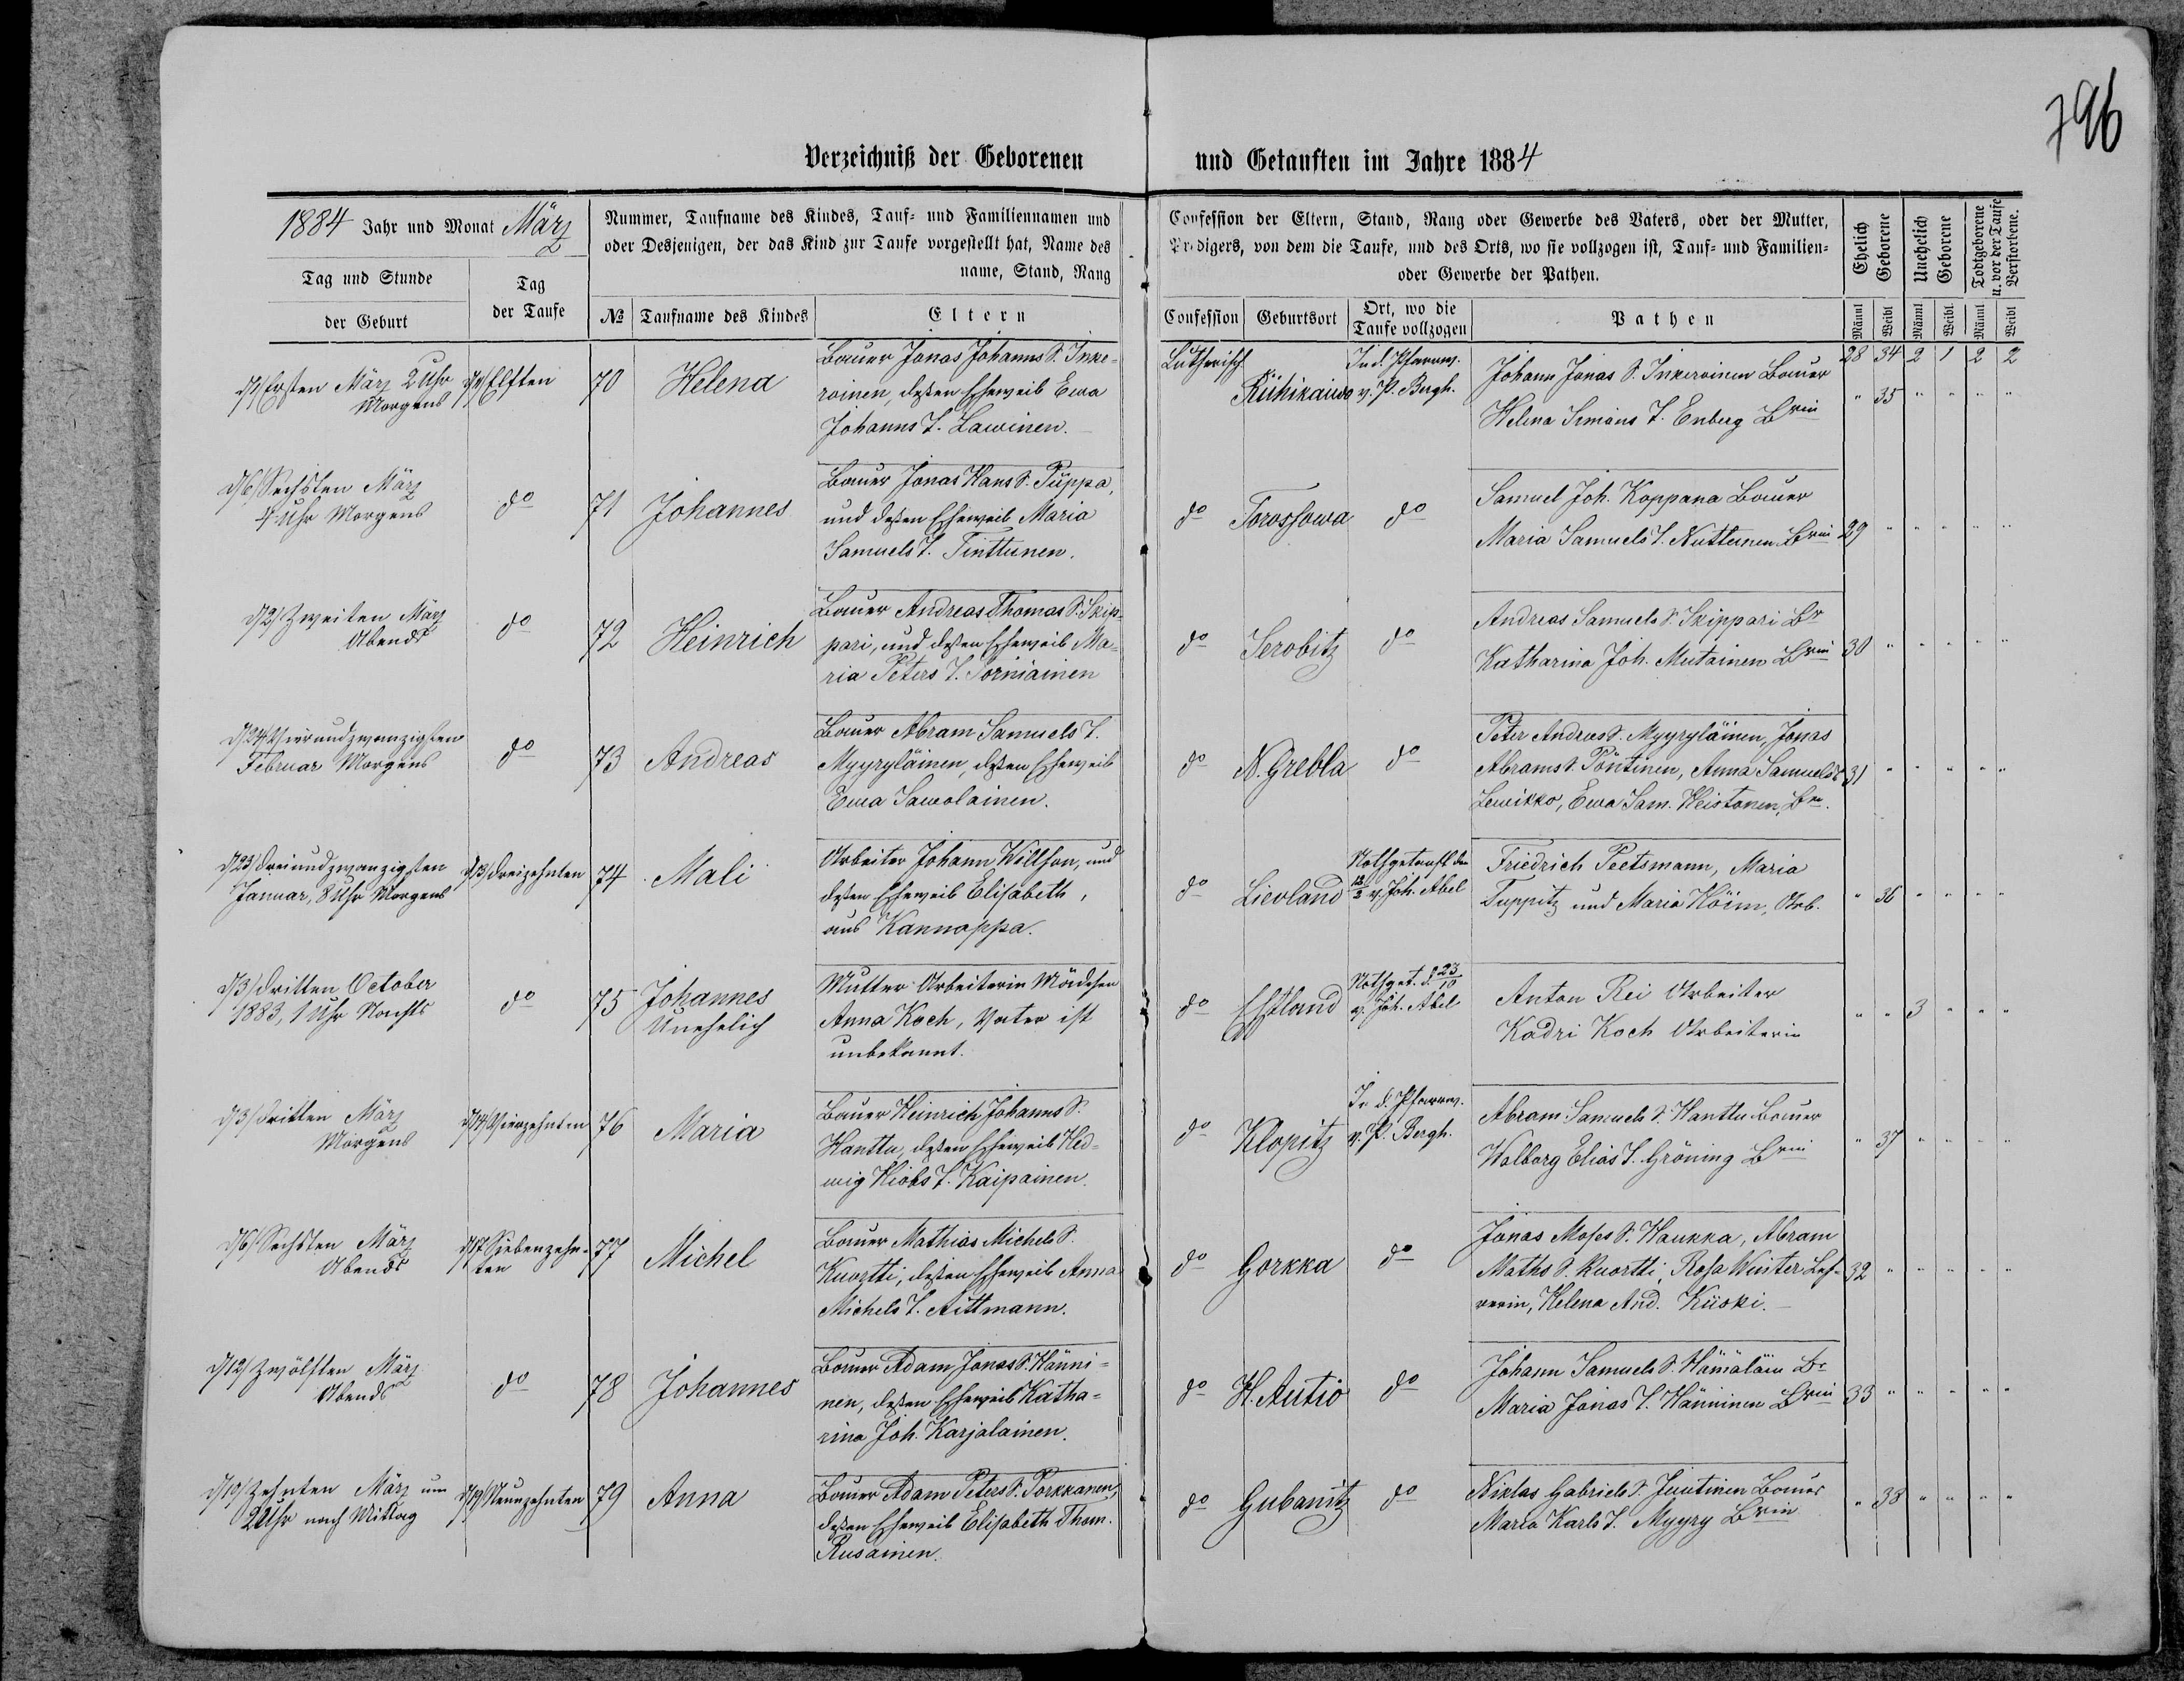 796
Verzeichniß der Geborenen und Getauften im Jahre 1884
1884 Jahr und Monat März
Tag und Stunde
der Geburt
Tag
der Taufe
Nummer, Taufname des Kindes, Tauf- und Familiennamen und
oder Desjenigen, der das Kind zur Taufe vorgestellt hat, Name des
name, Stand, Rang
№ Taufname des Kindes Eltern
Confession der Eltern, Stand, Rang oder Gewerbe des Vaters, oder der Mutter,
Predigers, von dem die Taufe, und des Orts, wo sie vollzogen ist, Tauf- und Familien-
oder Gewerbe der Pathen.
Confession Geburtsort
Ort, wo die
Taufe vollzogen
Pathen
Ehelich
Geborene
Unehelich
Geborene
Todtgeborene
u. vor der Taufe
Verstorbene.
Männl Weibl Männl Weibl. Männl Weibl
28 34 2 1 2 2
d/1/ Ersten März 2 Uhr
Morgens
d/11/ Elften
70 Helena
Bauer Jonas Johanns S. Inke-
roinen, deßen Eheweib Ewa
Johanns T. Lawinen.
Lutherisch
Kühikaiwo
In d. Pfarrw.
v. P. Bergh.
Johann Jonas S. Inkeroinen Bauer
Helena Simons T. Enberg Brin
" 35 " " " "
d/6/ Sechsten März
4 Uhr Morgens
do
71 Johannes
Bauer Jonas Hans S. Puppa,
und deßen Eheweib Maria
Samuels T. Tinttunen.
do Torossowa do
Samuel Joh. Koppana Bauer
Maria Samuels T. Nuttunen Brin
29 " " " " "
d/2/ Zweiten März
Abends
do
72 Heinrich
Bauer Andreas Thomas S. Skip-
pari, und deßen Eheweib Ma-
ria Peters T. Torniainen
do Serobitz do
Andreas Samuels S. Skippari Br
Katharina Joh. Mutainen Brin
30 " " " " "
d/24/ Vierundzwanzigsten
Februar Morgens
do
73 Andreas
Bauer Abram Samuels S.
Myyryläinen, deßen Eheweib
Ewa Sawolainen.
do N. Grebla do
Peter Andreas S. Myyryläinen, Jonas
Abrams S. Pöntinen, Anna Samuels T.
Lewikko, Ewa Sam. Heistonen, Br.
31 " " " " "
d/23/ Dreiundzwanzigsten
Januar, 8 Uhr Morgens
d/13/ Dreizehnten
74 Mali
Arbeiter Johann Willson, und
deßen Eheweib Elisabeth,
aus Kannappa.
do Lievland
Nothgetauft den
v. Joh. Abel
Friedrich Peetsmann, Maria
Tuppitz und Maria Höim, Arb.
" 36 " " " "
d/3/ Dritten October
1883, 1 Uhr Nachts
do
75 Johannes
Unehelich
Mutter Arbeiterin Mädchen
Anna Koch, Vater ist
unbekannt.
do Estland
Nothget. d. 23/10
v. Joh. Abel
Anton Rei Arbeiter
Kadri Koch Arbeiterin
" " 3 " " "
d/3/ Dritten März
Morgens
d/14/ Vierzehnten
76 Maria
Bauer Heinrich Johanns S.
Hanttu, deßen Eheweib Hed-
wig Hiobs T. Kaipainen.
do Klopitz
In d. Pfarrw.
v. P. Bergh.
Abram Samuels S. Hanttu Bauer
Walborg Elias T. Gröning Brin
" 37 " " " "
d/6/ Sechsten März
Abends
d/17/ Siebenzehn-
ten
77 Michel
Bauer Mathias Michels S.
Kuortti, deßen Eheweib Anna
Michels T. Aittmann.
do Gorkka do
Jonas Moses S. Haukka, Abram
Maths S. Kuortti, Rosa Winter Leh-
rerin, Helena And. Kiiski.
32 " " " " "
d/12/ Zwölften März
Abends
do
78 Johannes
Bauer Adam Jonas S. Hänni-
nen, deßen Eheweib Katha-
rina Joh. Karjalainen.
do H. Autio do
Johann Samuels S. Hämäläin Br
Maria Jonas T. Hänninen Brin
33 " " " " "
d/10/ Zehnten März um
2 Uhr nach Mittag
d/19/ Neunzehnten
79 Anna
Bauer Adam Peters S. Porkkanen,
deßen Eheweib Elisabeth Thom.
Rusainen.
do Gubanitz do
Niklas Gabriels S. Juutinen Bauer
Maria Karls T. Myyry Brin
" 38 " " " "